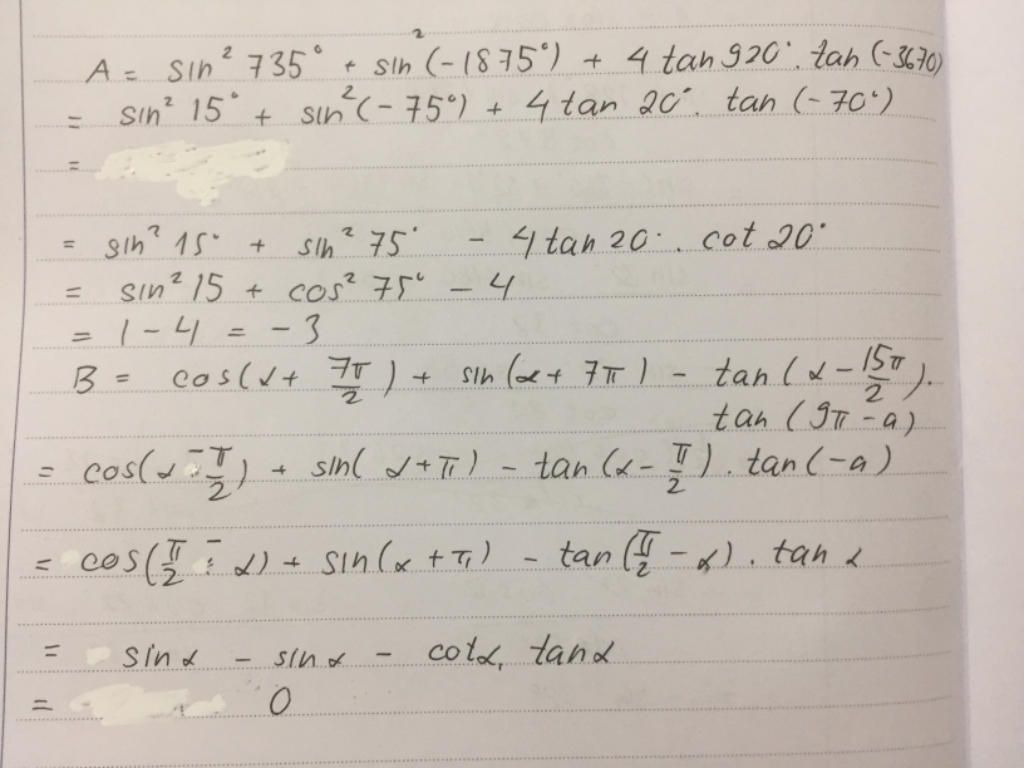 A = sin² 735° + sin²(-1875°) + 4 tan 920°. tan(-3670)
= sin² 15° + sin²(-75°) + 4 tan 20°. tan (-70°)
=
= sin² 15° + sin² 75° - 4 tan 20°. cot 20°
= sin² 15 + cos² 75° - 4
= 1 - 4 = - 3
B = cos(α + 7π/2) + sin(α + 7π) - tan(α - 15π/2).
tan (9π - a)
= cos(α - π/2) + sin(α + π) - tan(α - π/2). tan(-a)
= cos(π/2 - α) + sin(α + π) - tan(π/2 - α). tan α
= sin α - sin α - cot α. tan α
= 0